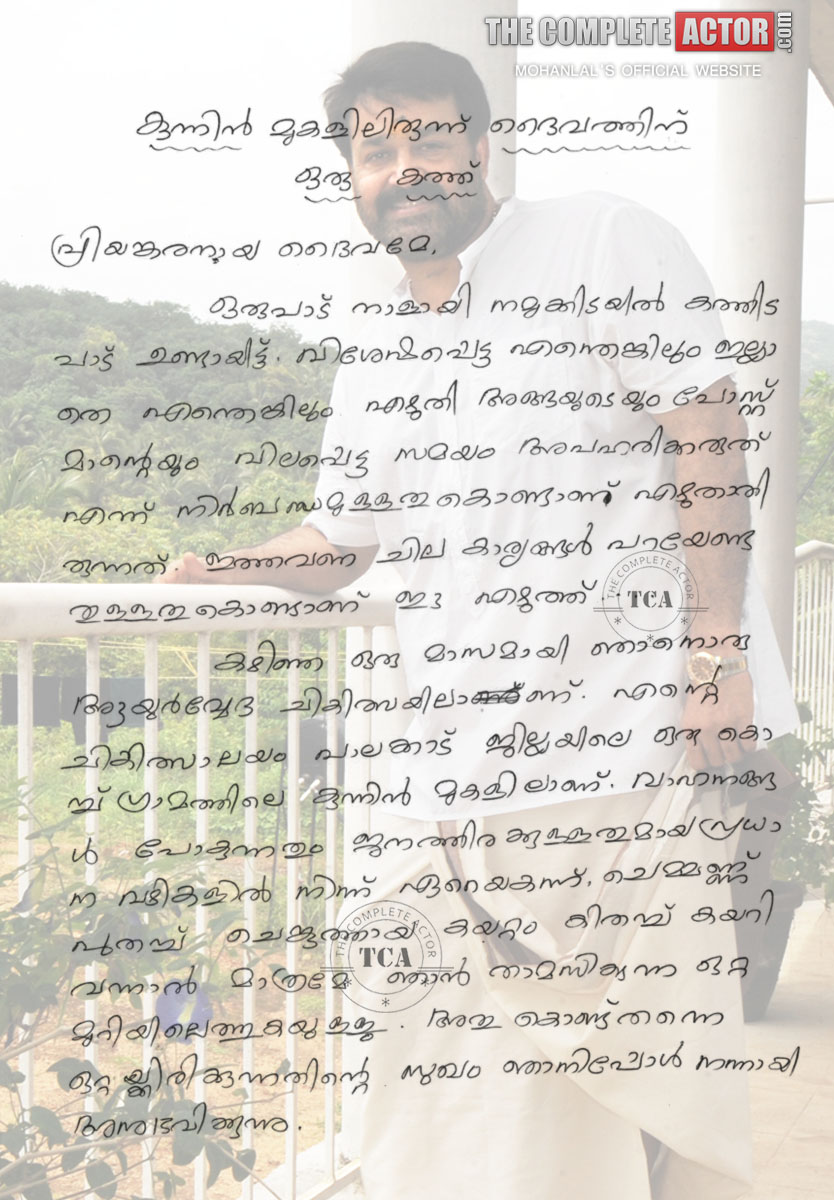 THE COMPLETE ACTOR.com
MOHANLAL'S OFFICIAL WEBSITE
കുന്നിൻ മുകളിലിരുന്ന് ദൈവത്തിന്
ഒരു കത്ത്
പ്രിയങ്കരനായ ദൈവമേ,
ഒരുപാട് നാളായി നമുക്കിടയിൽ കത്തിട
പാട് ഉണ്ടായിട്ട്. വിശേഷപ്പെട്ട എന്തെങ്കിലും ഇല്ലാ
തെ എന്തെങ്കിലും എഴുതി അങ്ങയുടെയും പോസ്റ്റ്
മാന്റെയും വിലപ്പെട്ട സമയം അപഹരിക്കരുത്
എന്ന് നിർബന്ധമുള്ളതുകൊണ്ടാണ് എഴുതാതി
രുന്നത്. ഇത്തവണ ചില കാര്യങ്ങൾ പറയേണ്ട
തുള്ളതുകൊണ്ടാണ് ഈ എഴുത്ത്...
THE COMPLETE ACTOR
TCA
കഴിഞ്ഞ ഒരു മാസമായി ഞാനൊരു
ആയുർവ്വേദ ചികിത്സയിലാണ്. എന്റെ
ചികിത്സാലയം പാലക്കാട് ജില്ലയിലെ ഒരു കൊ
ച്ച് ഗ്രാമത്തിലെ കുന്നിൻ മുകളിലാണ്. വാഹനങ്ങ
ൾ പോകുന്നതും ജനത്തിരക്കുള്ളതുമായ പ്രധാ
ന വഴികളിൽ നിന്ന് ഏറെയകന്ന്, ചെമ്മണ്ണ്
പുതച്ച് ചെങ്കുത്തായ കയറ്റം കിതച്ച് കയറി
THE COMPLETE ACTOR
TCA
വന്നാൽ മാത്രമേ ഞാൻ താമസിക്കുന്ന ഒറ്റ
മുറിയിലെത്തുകയുള്ളൂ. അതു കൊണ്ട് തന്നെ
ഒറ്റയ്ക്കിരിക്കുന്നതിന്റെ സുഖം ഞാനിപ്പോൾ നന്നായി
അനുഭവിക്കുന്നു.